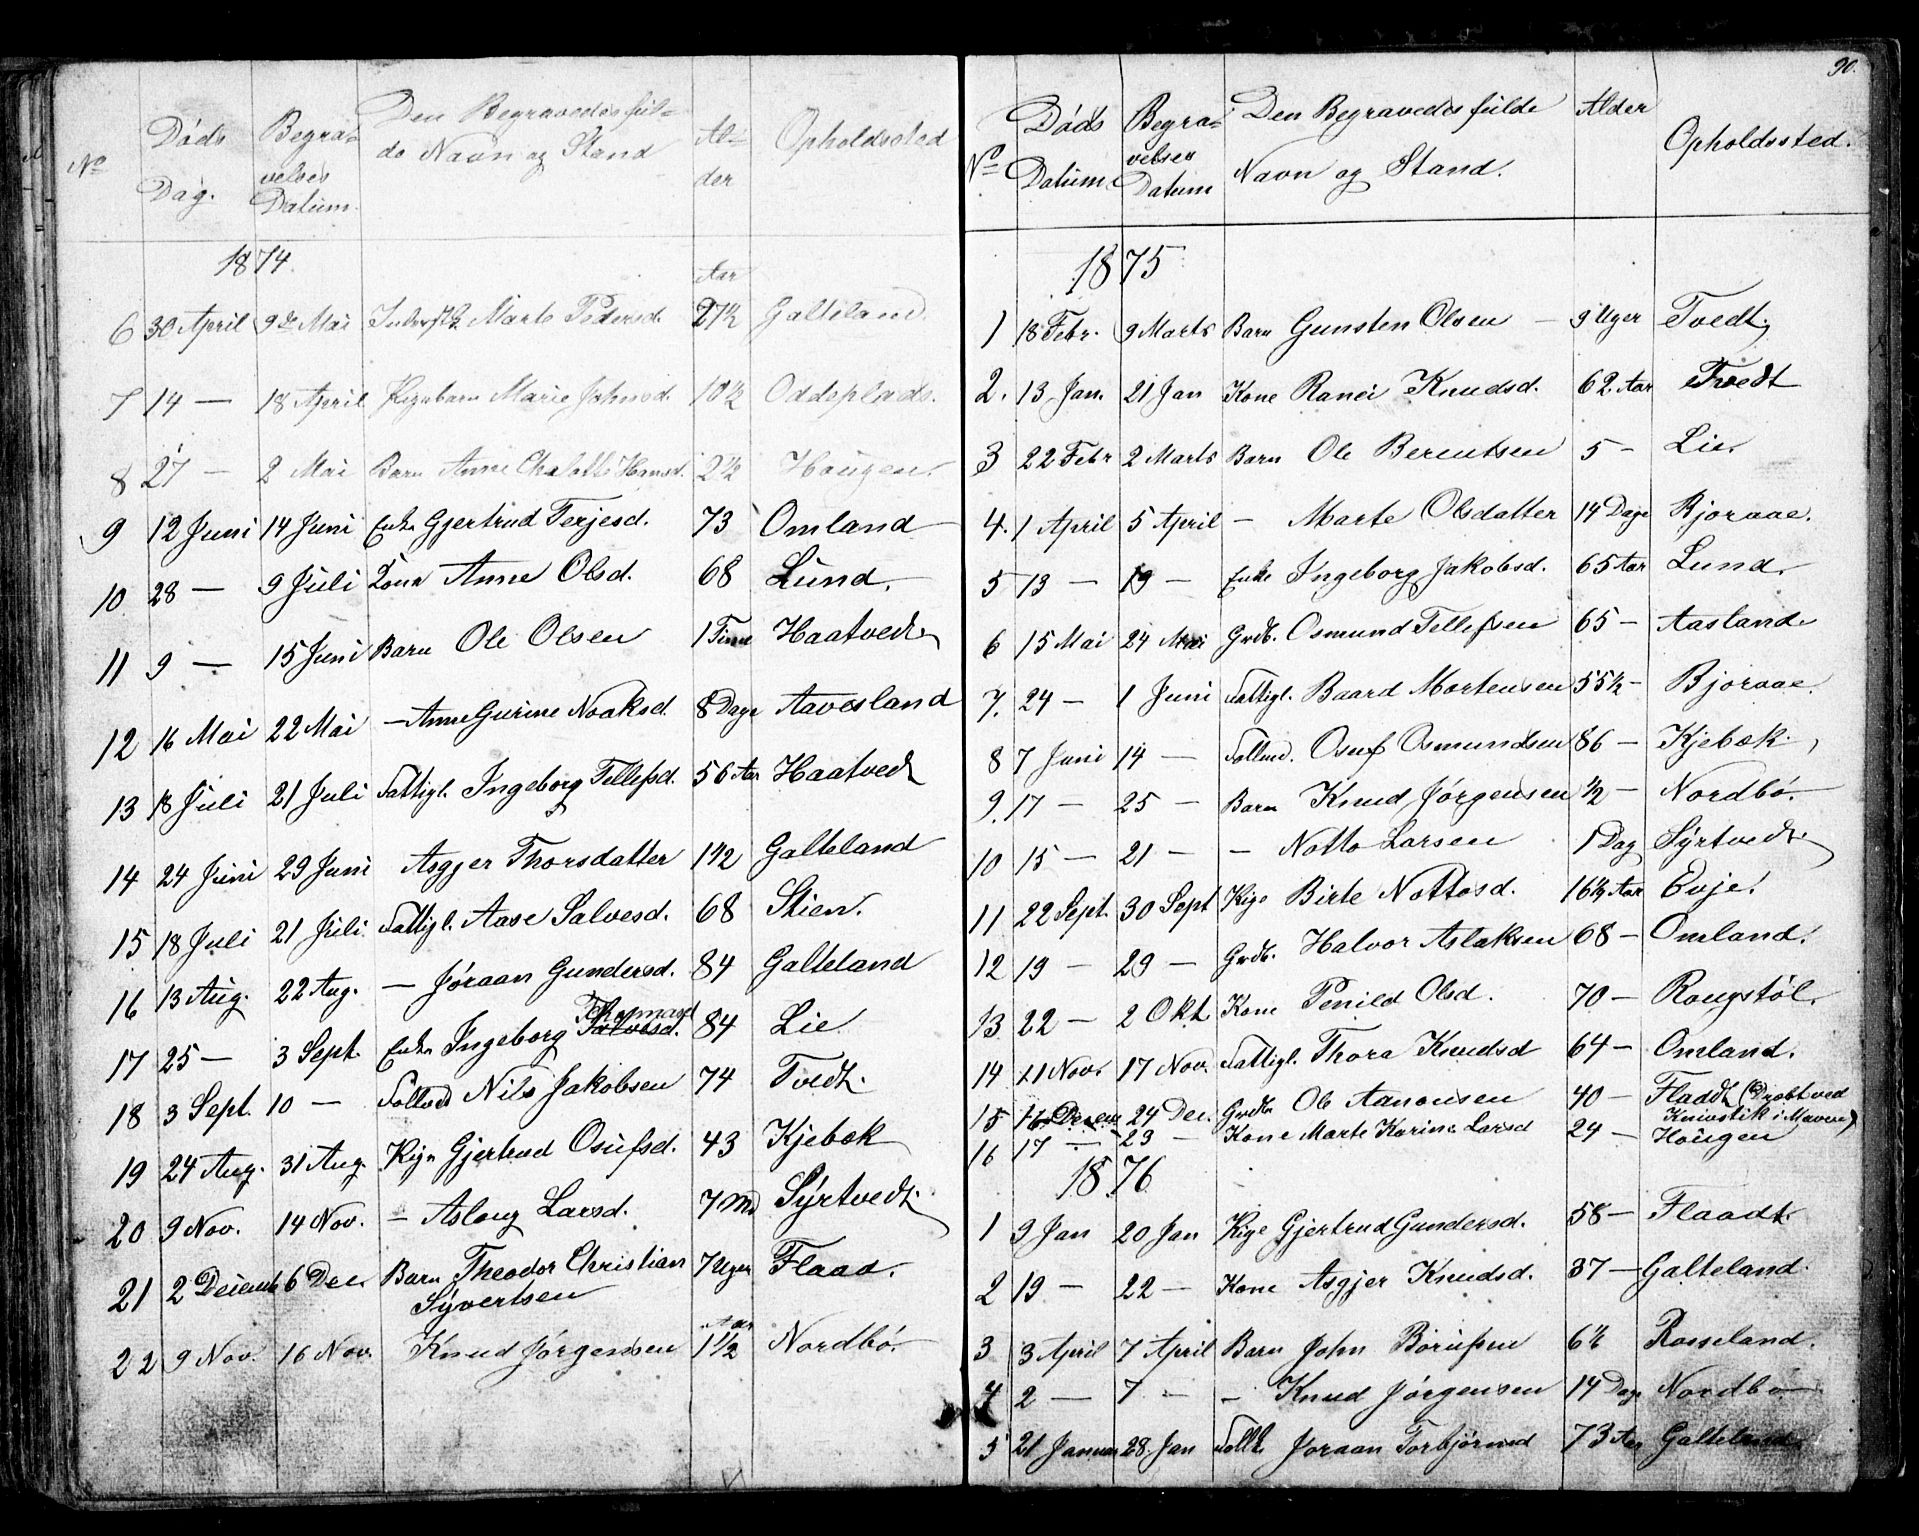 No Døds Dag. Begravelses Datum. Den Begravedes fulde Navn og Stand Alder Opholdssted
1874
Aar
6 30 April 9de Mai Marte Pedersd. 27½ Galteland.
7 14 — 18 April Pigebarn Marie Johnsd. 10½ Oddeplads.
8 27 — 2 Mai Barn Anne Chalotte Hansd. 2½ Haugen.
9 12 Juni 14 Juni Enke Gjertrud Terjesd. 73 Omland
10 28 — 9 Juli Kone Anne Olsd. 68 Lund.
11 9 — 15 Juni Barn Ole Olsen 1 Time Haatvedt
12 16 Mai 22 Mai — Anne Gurine Noaksd. 8 Dage Aavesland
13 18 Juli 21 Juli Fattigl. Ingeborg Tellefsd. 56 Aar Haatvedt
14 24 Juni 29 Juni Asgjer Thorsdatter 1½ Galteland
15 18 Juli 21 Juli Fattigl. Aase Salvesd. 68 Stien.
16 13 Aug. 22 Aug. — Jøraan Gundersd. 84 Galteland
Thormasd
17 25 — 3 Sept. Enke Ingeborg Salvesd. 84 Lie
18 3 Sept. 10 — Nils Jakobsen 74 Tvedt.
19 24 Aug. 31 Aug. Pige Gjertrud Osufsd. 43 Kjebæk
20 9 Nov. 14 Nov. — Aslaug Larsd. 7 Md Syrtvedt.
21 2 Decemb 6 Dec. Barn Theodor Christian 7 Uger Flaad.
Syvertsen
Aar
22 9 Nov. 16 Nov. Knud Jørgensen 1½ Nordbø.
90.
No Døds Datum. Begravelses Datum Den Begravedes fulde Navn og Stand. Alder Opholdssted.
1875
1 18 Febr. 9 Marts Barn Gunsten Olsen — 9 Uger Tvedt
2. 13 Jan. 21 Jan Kone Ranei Knudsd. 62 Aar Tvedt
3 22 Febr 2 Marts Barn Ole Berentsen 5 — Lie.
4. 1 April 5 April — Marte Olsdatter 14 Dage Bjoraae.
5 13 — 19 — Enke Ingeborg Jakobsd. 65 Aar Lund.
6 15 Mai 24 Mai Grdb. Osmund Tellefsen 65 — Aasland.
7. 24 — 1 Juni Fattigl. Baard Mortensen 55½ — Bjoraae.
8 7 Juni 14 — Osuf Osmundsen 86 — Kjebæk.
9. 17 — 25 — Barn Knud Jørgensen ½ — Nordbø.
10 15 — 21 — — Notto Larsen 1 Dag Syrtvedt
11 22 Sept. 30 Sept Pige Birte Nottosd. 16½ Aar Evje.
12 19 — 29 — Grdb. Halvor Aslaksen 68 — Omland.
13 22 — 2 Okt. Kone Penild Olsd. 70 — Rougstøl.
14 11 Nov. 17 Nov. Fattigl. Thora Knudsd 64 — Omland.
15 16 Decem 24 Dec. Grdb. Ole Aanonsen 40 — Flaadt (Dræbt ved
Knivstik i Maven)
16 17 — 23 — Kone Marte Karine Larsd 29 — Haugen
1876
1 9 Jan 20 Jan Pige Gjertrud Gundersd. 58 — Flaadt.
2 19 — 22 — Kone Asgjer Knudsd. 37 — Galteland.
3 3 April 7 April Barn John Børufsen 6½ Rosseland.
4 2 — 7 — — Knud Jørgensen 14 Dage Nordbø
5 21 Januar 28. Jan Jøraan Torbjørnsd 73 Aar Galteland.